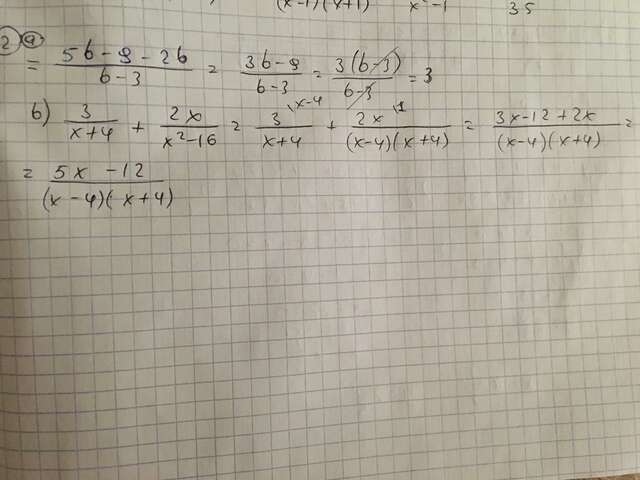 (x-1)(x+1) x²-1 35
2 a
= (5b-9-2b)/(b-3) = (3b-9)/(b-3) = (3(b-3))/(b-3) = 3
б) 3/(x+4) + 2x/(x²-16) = 3\x-4/(x+4) + 2x\1/((x-4)(x+4)) = (3x-12+2x)/((x-4)(x+4)) =
= (5x-12)/((x-4)(x+4))